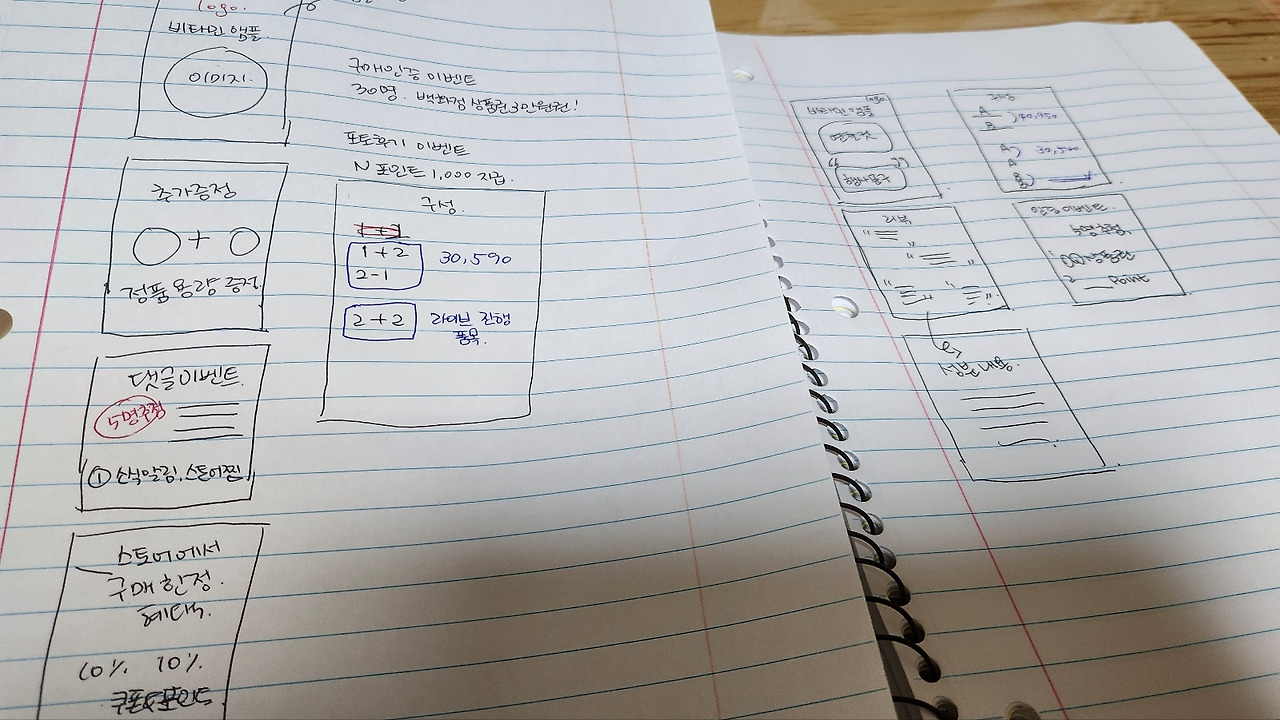 logo.
비타민 앰플.
이미지.
구매인증 이벤트
30명. 백화점 상품권 3만원권!
포토후기 이벤트
N 포인트 1,000 지급.
추가증정
+
정품 용량 증정.
구성.
1+2
30,590
2-1
2+2
라이브 진행
품목.
댓글이벤트.
5명추첨
① 소식알림, 스토어찜.
스토어에서
구매 한정.
혜택.
10%. 10%.
쿠폰&포인트
logo
비타민 앰플
행사문구
구성
A
B
40,950
A
A
30,590
B
리뷰
"
"
"
"
"
"
"
"
성분 내용.
이벤트.
5명 추첨,
2
Point